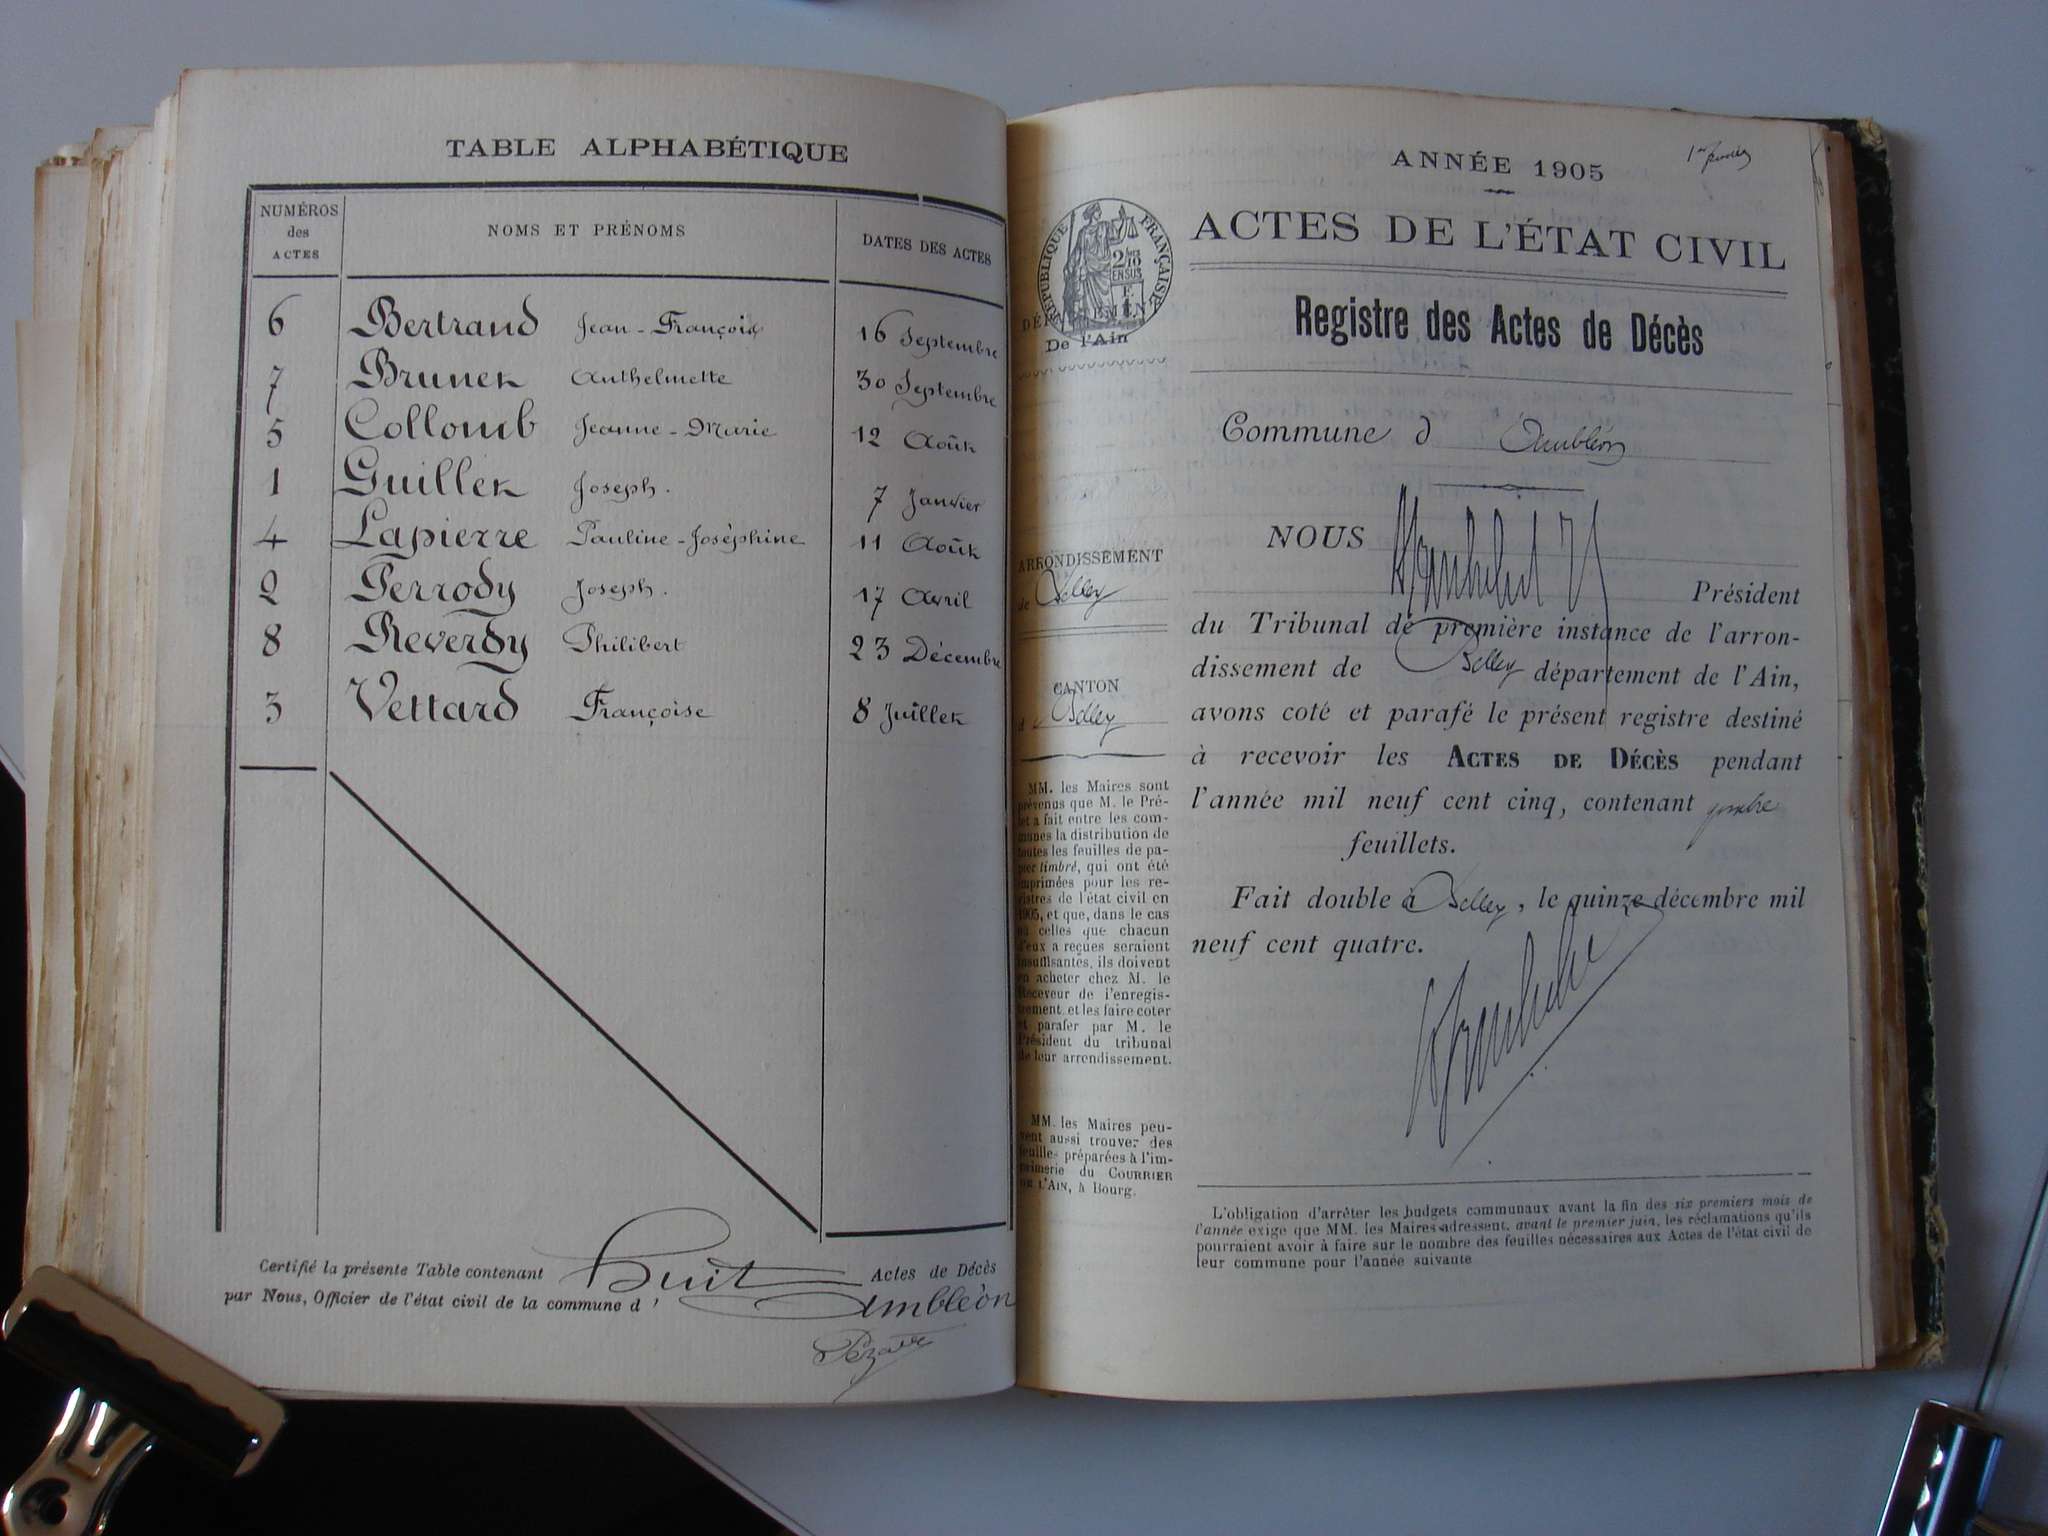 TABLE ALPHABÉTIQUE
NUMÉROS des ACTES
NOMS ET PRÉNOMS
DATES DES ACTES
6 Bertrand Jean-François 16 Septembre
7 Brunet Anthelmette 30 Septembre
5 Collomb Jeanne-Marie 12 Août
1 Guillet Joseph. 7 Janvier
4 Lapierre Pauline-Joséphine 11 Août
2 Perrody Joseph. 17 Avril
8 Reverdy Philibert 23 Décembre
3 Vettard Françoise 8 Juillet
Certifié la présente Table contenant Huit Actes de Décès
par Nous, Officier de l'état civil de la commune d' Ambléon
ANNÉE 1905
ACTES DE L'ÉTAT CIVIL
RÉPUBLIQUE FRANÇAISE
De l'Ain
Registre des Actes de Décès
Commune d Ambléon
NOUS
Président
du Tribunal de première instance de l'arron-
dissement de Belley département de l'Ain,
avons coté et parafé le présent registre destiné
à recevoir les ACTES DE DÉCÈS pendant
l'année mil neuf cent cinq, contenant
feuillets.
Fait double à Belley, le quinze décembre mil
neuf cent quatre.
ARRONDISSEMENT
de Belley
CANTON
d Belley
MM. les Maires sont
prévenus que M. le Pré-
fet a fait entre les com-
munes la distribution de
toutes les feuilles de pa-
pier timbré, qui ont été
imprimées pour les re-
gistres de l'état civil en
1905, et que, dans le cas
où celles que chacun
d'eux a reçues seraient
insuffisantes, ils doivent
en acheter chez M. le
Receveur de l'enregis-
trement et les faire coter
et parafer par M. le
Président du tribunal
de leur arrondissement.
MM. les Maires peu-
vent aussi trouver des
feuilles préparées à l'im-
primerie du COURRIER
DE L'AIN, à Bourg.
L'obligation d'arrêter les budgets communaux avant la fin des six premiers mois de
l'année exige que MM. les Maires adressent, avant le premier juin, les réclamations qu'ils
pourraient avoir à faire sur le nombre des feuilles nécessaires aux Actes de l'état civil de
leur commune pour l'année suivante